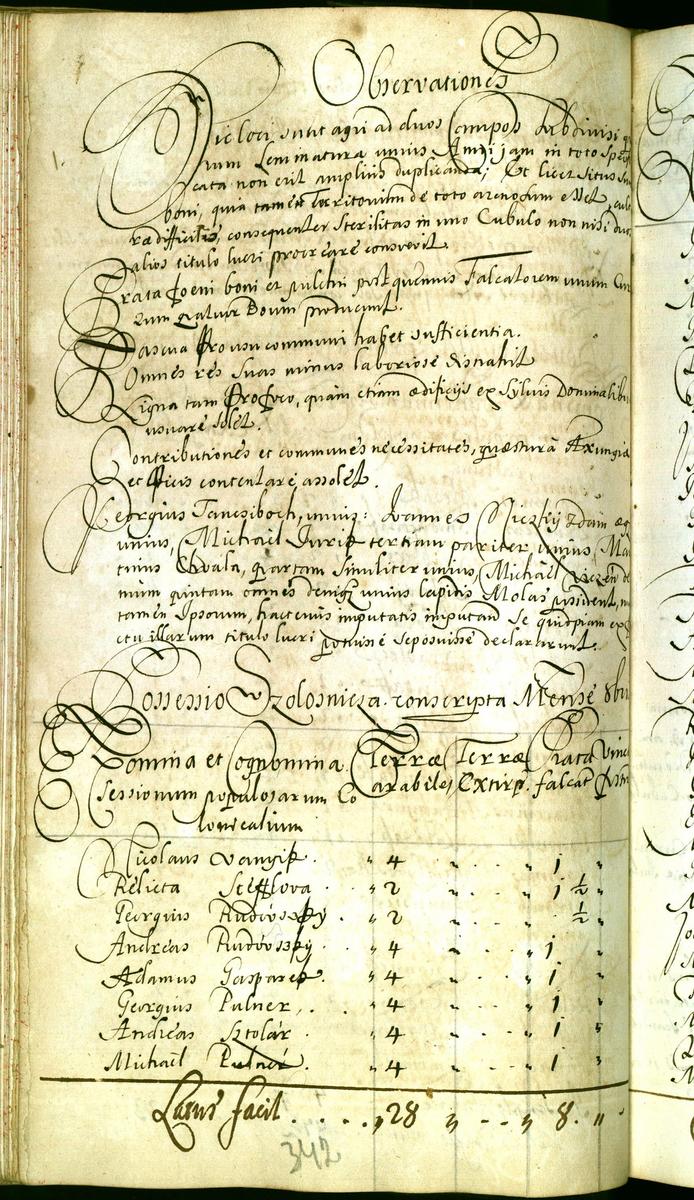 Observationes
Hic loci sunt agri ad duos Campos Subdivisi
rum Seminatura unius Anni jam in toto
cata non erit amplius duplicanda; Et licet situs
boni, quia tamen Territorium de toto arenosum esset,
ra difficilis, consequenter Sterilitas in uno Cubulo non nisi duos
alios titulo lucri procreare consvevit.
Prata foeni boni et pulchri post quemvis Falcatorem unum Cur
rum quatuor Boum producunt.
Pascua Pro usu communi habet sufficientia.
Omnes res suas minus laboriose distrahit
Ligna tam Pro foco, quam etiam ædificijs ex Sylvis Dominalibus
usuare solet.
Contributiones et communes necessitates, quæstura Axungia
et Officijs concentare assolet.
Georgius Tancsiboch, unius: Ioannes
unius, Michael Iurik tertiam pariter unius, Mar
tinus Chvala, quartam similiter unius, Michael
mum quintam omnes deniq unius lapidis Molas possident,
tamen Ipsorum, hactenus imputatis imputandis se quidpiam ex
ctu illarum titulo lucri potuisse seposuisse declararunt.
Possessio Szolosnicza conscripta Mense 8bri
Nomina et Cognomina Terræ Terræ Prata Vine
Sessionum populosarum Co arabiles Extirp. falcat
lonicalium
Nicolaus Vanyik . " 4 " . . . 1 "
Relicta Stefflova . " 2 " . . . 1 ½ "
Georgius Rudovszky . " 2 " . . . ½ "
Andreas Rudovszky . . " 4 " . . " 1 "
Adamus Gasparek . . " 4 " . . " 1 "
Georgius Pulner, . . " 4 " . . " 1 "
Andreas Sztolár . . " 4 " . . " 1 "
Michael Pulner . . " 4 " . . " 1 "
Latus facit . . . . " 28 " . . " 8. "
342